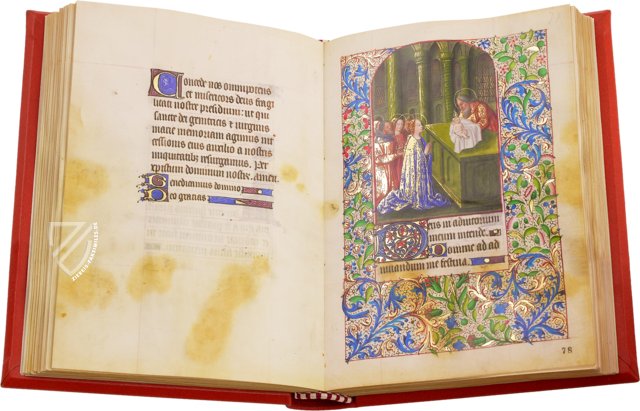 Concede nos omnipotens
et misericors deus fragi
litati nostre presidium: ut qui
sancte dei genitricis et virginis
marie memoriam agimus in
cessionis eius auxilio a nostris
iniquitatibus resurgamus. Per
xpistum dominum nostrum. Amen.
Benedicamus domino
Deo gratias
ZIEREIS FACSIMILES
Deus in adiutorium
meum intende.
Domine ad ad
iuuandum me festina.
78